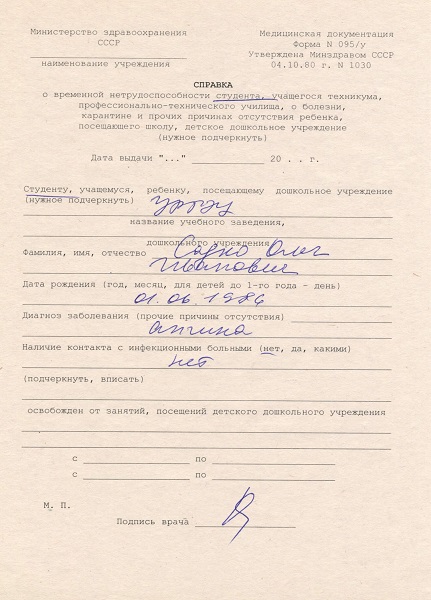 Министерство здравоохранения
СССР
наименование учреждения
Медицинская документация
Форма N 095/у
Утверждена Минздравом СССР
04.10.80 г. N 1030
СПРАВКА
о временной нетрудоспособности студента, учащегося техникума,
профессионально-технического училища, о болезни,
карантине и прочих причинах отсутствия ребенка,
посещающего школу, детское дошкольное учреждение
(нужное подчеркнуть)
Дата выдачи "..." 20 . . г.
Студенту, учащемуся, ребенку, посещающему дошкольное учреждение
(нужное подчеркнуть) УрГЭУ
название учебного заведения,
дошкольного учреждения
Фамилия, имя, отчество Садко Олег
Иванович
Дата рождения (год, месяц, для детей до 1-го года - день)
01.06.1986
Диагноз заболевания (прочие причины отсутствия)
ангина
Наличие контакта с инфекционными больными (нет, да, какими)
нет
(подчеркнуть, вписать)
освобожден от занятий, посещений детского дошкольного учреждения
с по
с по
М. П.
Подпись врача